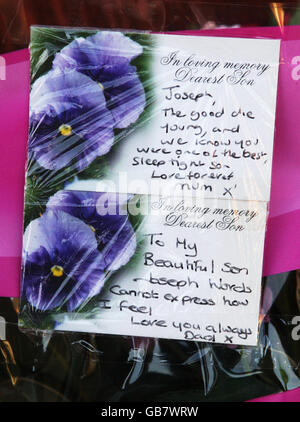 In loving memory
Dearest Son
Joseph,
The good die
young, and
we know you
were one of the best,
Sleep tight son
Love forever
mum x
In loving memory
Dearest Son
To My
Beautiful son
Joseph Words
Cannot express how
I feel
Love you always
Dad x
alamy
Image ID: G87WRW
www.alamy.com